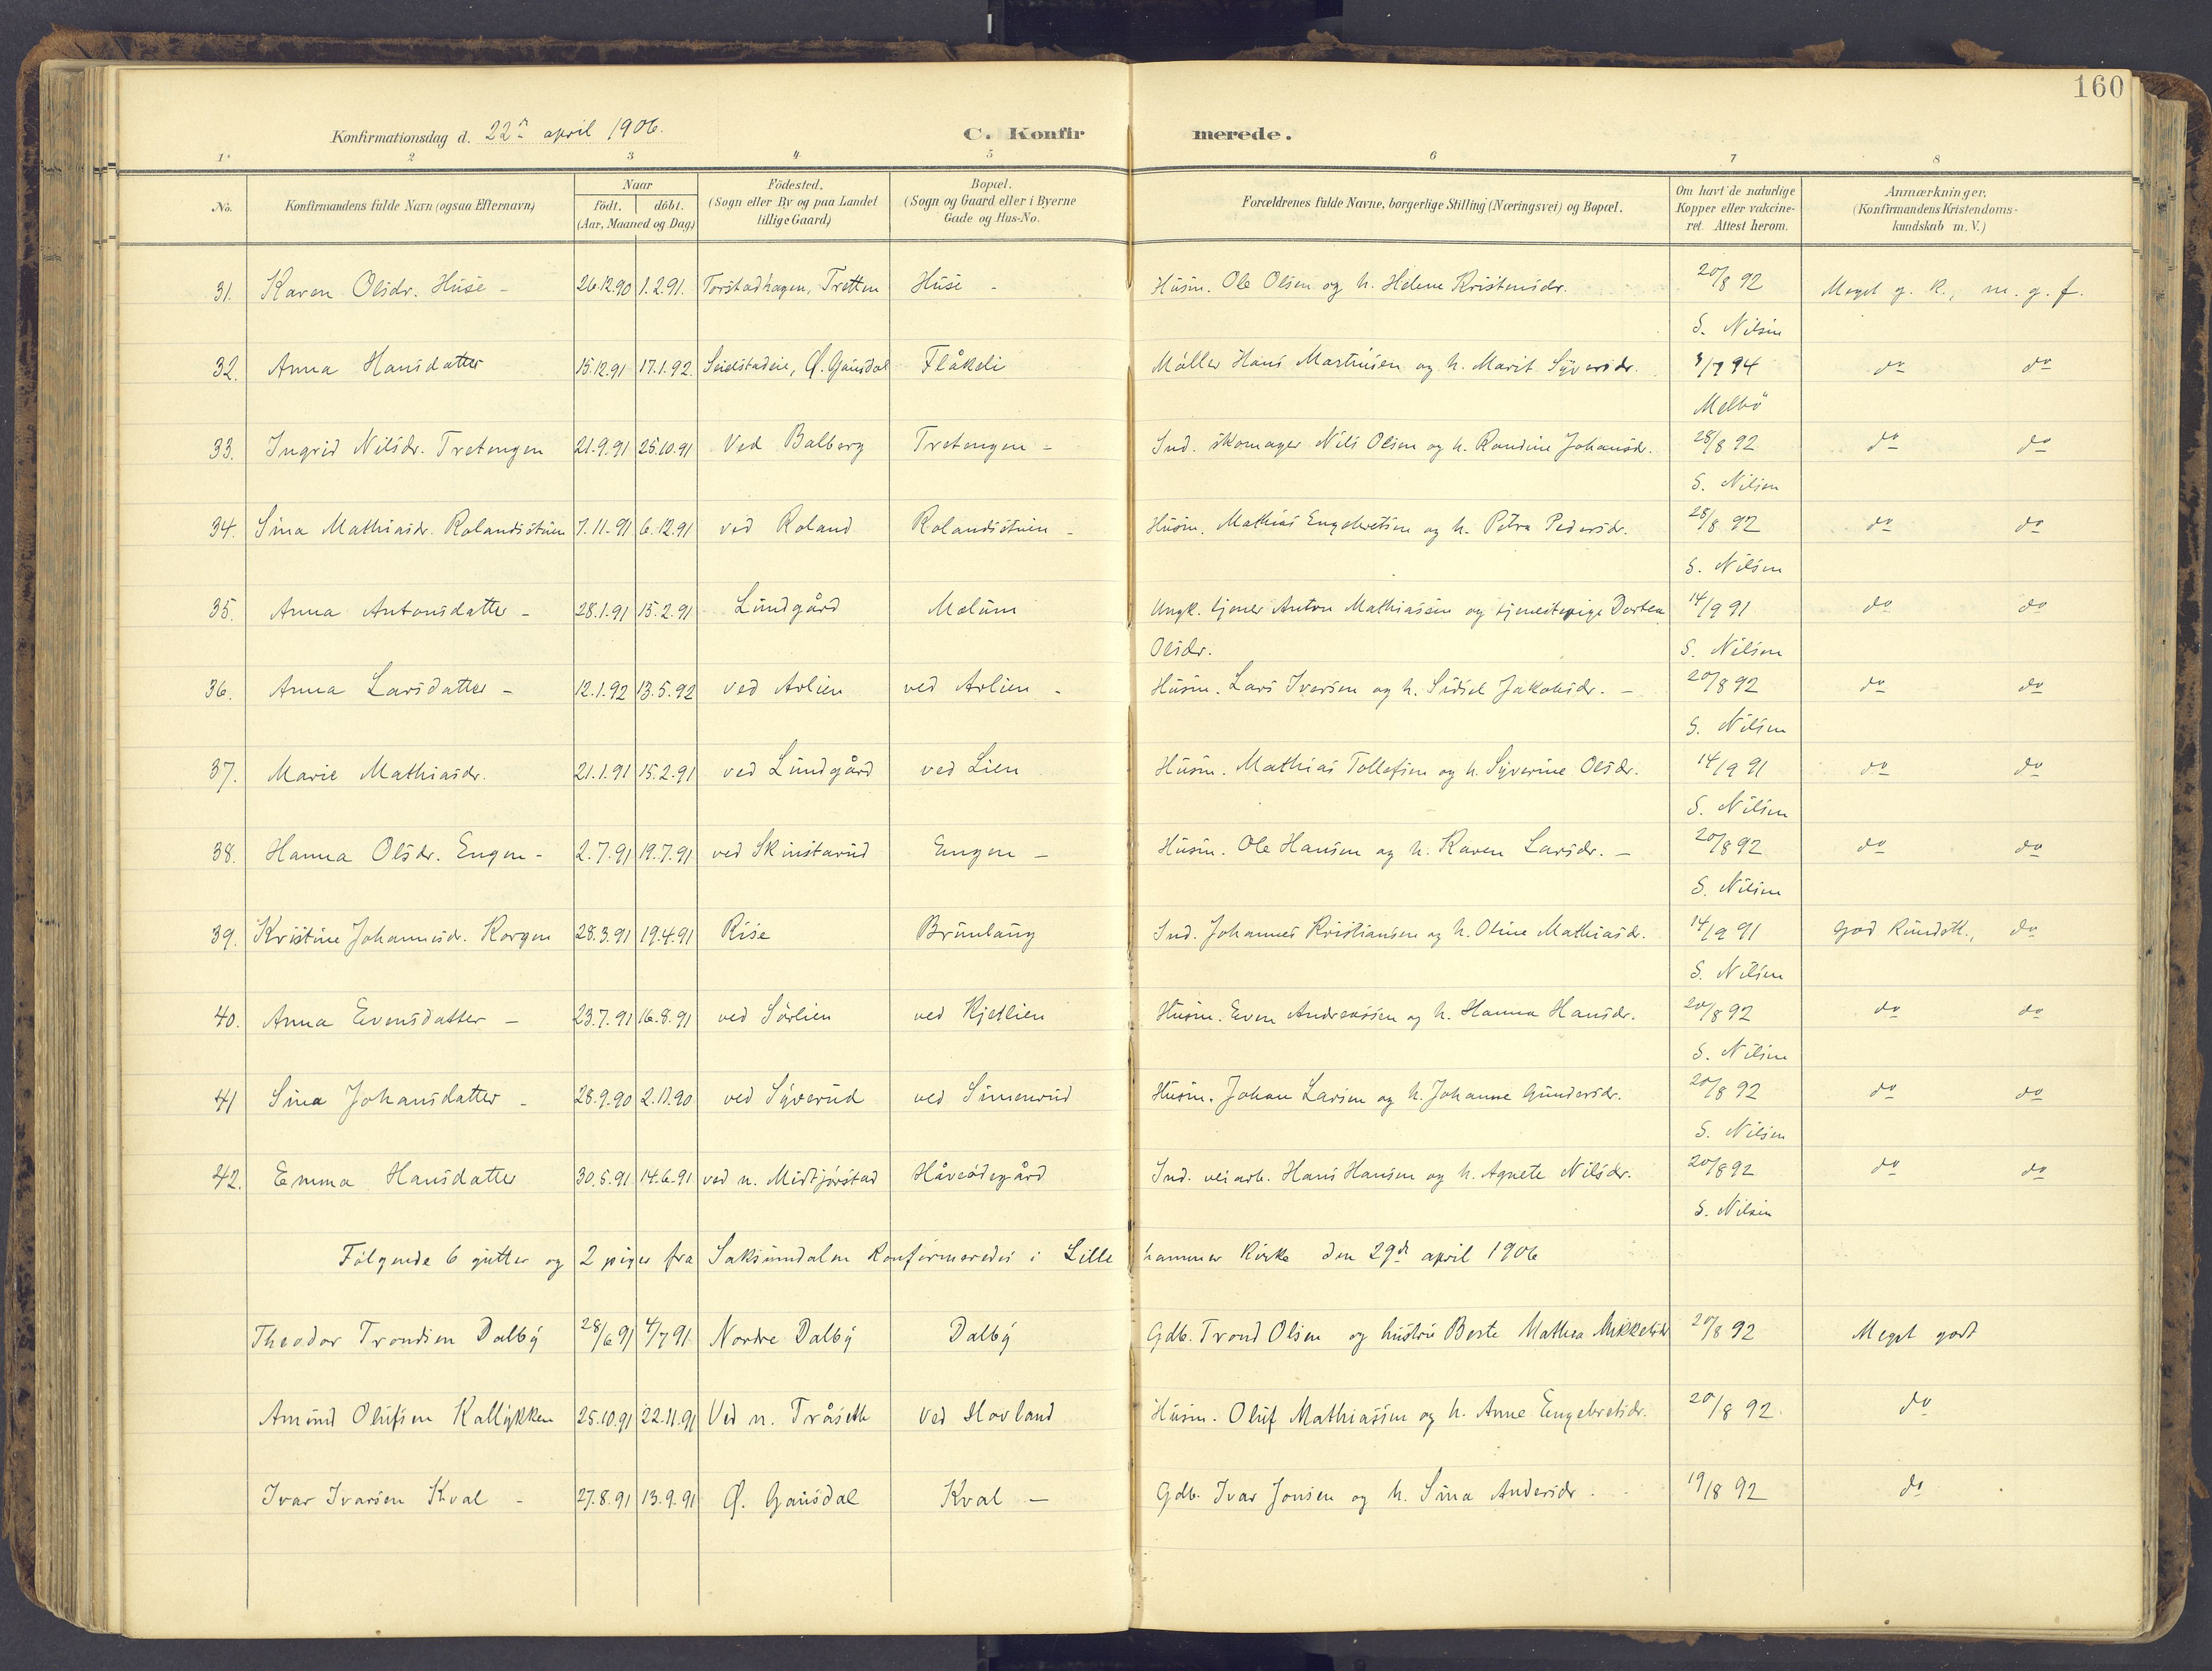 160
Konfirmationsdag d. 22de april 1906.
C. Konfirmerede.
1 2 3 4 5 6 7 8
No. Konfirmandens fulde Navn (ogsaa Efternavn) Naar Födt. döbt. (Aar, Maaned og Dag) Födested. (Sogn eller By og paa Landet tillige Gaard) Bopæl. (Sogn og Gaard eller i Byerne Gade og Hus-No. Forældrenes fulde Navne, borgerlige Stilling (Næringsvei) og Bopæl. Om havt de naturlige Kopper eller vakcineret. Attest herom. Anmærkninger. (Konfirmandens Kristendomskundskab m. V.)
31. Karen Olsdr. Huse - 26.12.90 1.2.91. Torstadhagen, Tretten Huse - Husm. Ole Olsen og h. Helene Kristensdr. 20/8 92 Meget g. k., m. g. f.
S. Nilsen
32. Anna Hansdatter 15.12.91 17.1.92. Ø. Gausdal Flåkeli Møller Hans Martinsen og h. Marit Syversdr. 94 do do
Melbö
33. Ingrid Nilsdr. Tretengen 21.9.91 25.10.91 Ved Balberg Tretengen - Ind. skomager Nils Olsen og h. Randine Johansdr. 28/8 92 do do
S. Nilsen
34. Sina Mathiasdr. Rolandsstuen 7.11.91 6.12.91 ved Roland Rolandsstuen - Husm. Mathias Engebretsen og h. Petra Pedersdr. 28/8 92 do do
S. Nilsen
35. Anna Antonsdatter - 28.1.91 15.2.91 Lundgård Mælum Ungk. tjener Anton Mathiassen og tjenestepige Dortea 14/9 91 do do
Olsdr. S. Nilsen
36. Anna Larsdatter - 12.1.92 13.5.92 ved Arlien ved Arlien - Husm. Lars Iversen og h. Sidsel Jakobsdr. - 20/8 92 do do
S. Nilsen
37. Marie Mathiasdr. 21.1.91 15.2.91 ved Lundgård ved Lien Husm. Mathias Tollefsen og h. Syverine Olsdr. 14/9 91 do do
S. Nilsen
38. Hanna Olsdr. Engen - 2.7.91 19.7.91 ved Skinstarud Engen - Husm. Ole Hansen og h. Karen Larsdr. - 20/8 92 do do
S. Nilsen
39. Kristine Johannesdr. Korgen 28.3.91 19.4.91 Rise Brunlaug Ind. Johannes Kristiansen og h. Oline Mathiasdr. 14/9 91 god kundsk., do
S. Nilsen
40. Anna Evensdatter - 23.7.91 16.8.91 ved Sørlien ved Kjetlien Husm. Even Andreassen og h. Hanna Hansdr. 20/8 92 do do
S. Nilsen
41 Sina Johansdatter - 28.9.90 2.11.90 ved Syverud ved Simenrud Husm. Johan Larsen og h. Johanne Gundersdr. 20/8 92 do do
S. Nilsen
42. Emma Hansdatter 30.5.91 14.6.91 ved n. Midtjørstad Håveødegård Ind. veiarb. Hans Hansen og h. Agnete Nilsdr. 20/8 92 do do
S. Nilsen
Følgende 6 gutter og 2 piger fra Saksumdalen konfirmeredes i Lillehammer kirke den 29de april 1906
Theodor Trondsen Dalby 28/6 91 4/7 91 Nordre Dalby Dalby Gdb. Trond Olsen og hustru Berte Mathea Mikkelsdr 20/8 92 Meget godt
Amund Olufsen Kallykken 25.10.91 22.11.91 Ved n. Tråseth Ved Hovland Husm. Oluf Mathiassen og h. Anne Engebretsdr. 20/8 92. do
Ivar Ivarsen Kval - 27.8.91 13.9.91 Ø. Gausdal Kval - Gdb. Ivar Jonsen og h. Sina Andersdr. 19/8 92 do